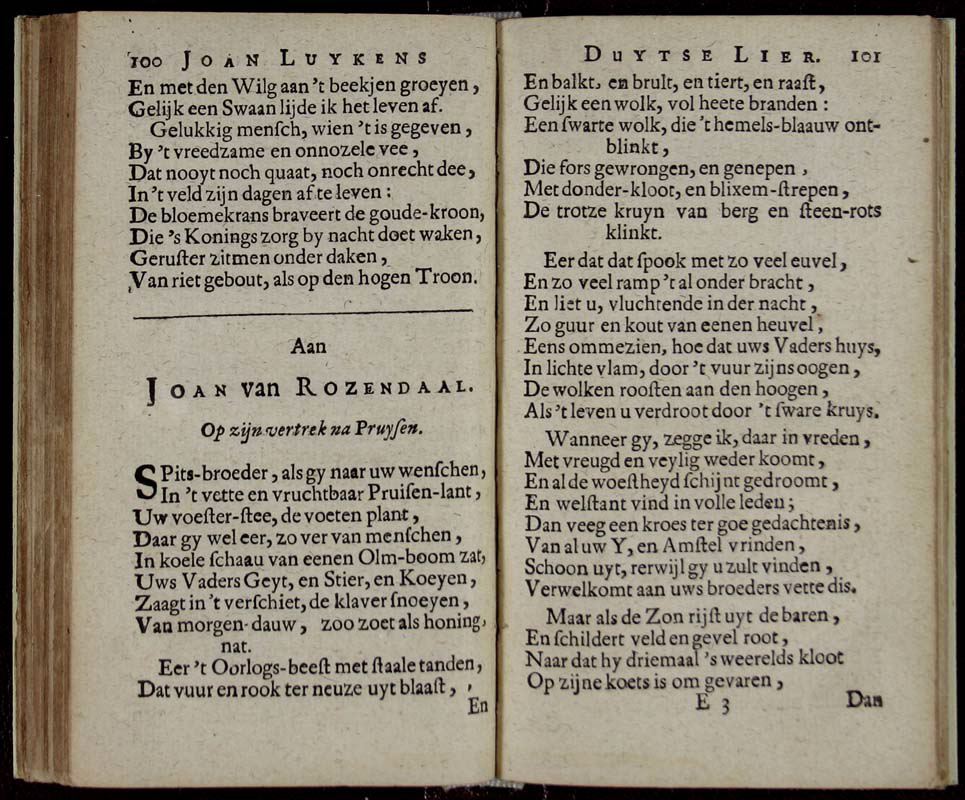 100 JOAN LUYKENS
En met den Wilg aan 't beekjen groeyen,
Gelijk een Swaan lijde ik het leven af.
Gelukkig menſch, wien 't is gegeven,
By 't vreedzame en onnozele vee,
Dat nooyt noch quaat, noch onrecht dee,
In 't veld zijn dagen af te leven:
De bloemekrans braveert de goude-kroon,
Die 's Konings zorg by nacht doet waken,
Geruſter zitmen onder daken,
Van riet gebout, als op den hogen Troon.
Aan
JOAN van ROZENDAAL.
Op zijn vertrek na Pruyſen.
SPits-broeder, als gy naar uw wenſchen,
In 't vette en vruchtbaar Pruiſen-lant,
Uw voeſter-ſtee, de voeten plant,
Daar gy wel eer, zo ver van menſchen,
In koele ſchaau van eenen Olm-boom zat,
Uws Vaders Geyt, en Stier, en Koeyen,
Zaagt in 't verſchiet, de klaver ſnoeyen,
Van morgen-dauw, zoo zoet als honing-
nat.
Eer 't Oorlogs-beeſt met ſtaale tanden,
Dat vuur en rook ter neuze uyt blaaſt,
En
DUYTSE LIER. 101
En balkt, en brult, en tiert, en raaſt,
Gelijk een wolk, vol heete branden:
Een ſwarte wolk, die 't hemels-blaauw ont-
blinkt,
Die fors gewrongen, en genepen,
Met donder-kloot, en blixem-ſtrepen,
De trotze kruyn van berg en ſteen-rots
klinkt.
Eer dat dat ſpook met zo veel euvel,
En zo veel ramp 't al onder bracht,
En liet u, vluchtende in der nacht,
Zo guur en kout van eenen heuvel,
Eens ommezien, hoe dat uws Vaders huys,
In lichte vlam, door 't vuur zijns oogen,
De wolken rooſten aan den hoogen,
Als 't leven u verdroot door 't ſware kruys.
Wanneer gy, zegge ik, daar in vreden,
Met vreugd en veylig weder koomt,
En al de woeſtheyd ſchijnt gedroomt,
En welſtant vind in volle leden;
Dan veeg een kroes ter goe gedachtenis,
Van al uw Y, en Amſtel vrinden,
Schoon uyt, terwijl gy u zult vinden,
Verwelkomt aan uws broeders vette dis.
Maar als de Zon rijſt uyt de baren,
En ſchildert veld en gevel root,
Naar dat hy driemaal 's weerelds kloot
Op zijne koets is om gevaren,
E 3 Dan